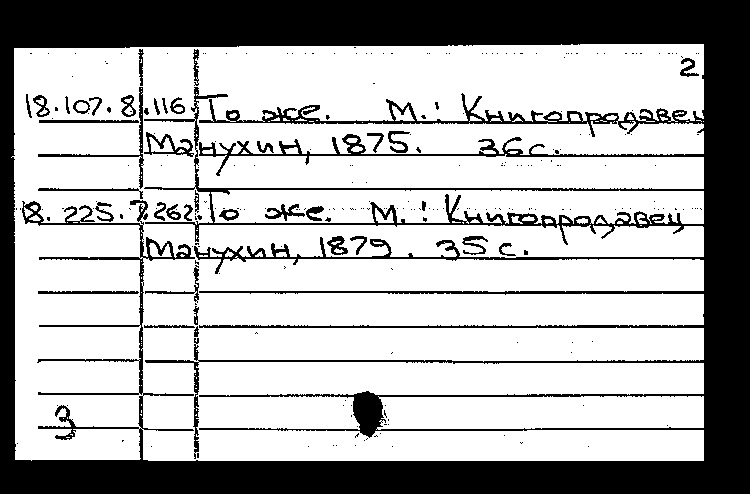 2.
18.107.8.116. То же. М.: Книгопродавец
Манухин, 1875. 36 с.
18. 225.7.262. То же. М.: Книгопродавец
Манухин, 1879. 35 с.
3